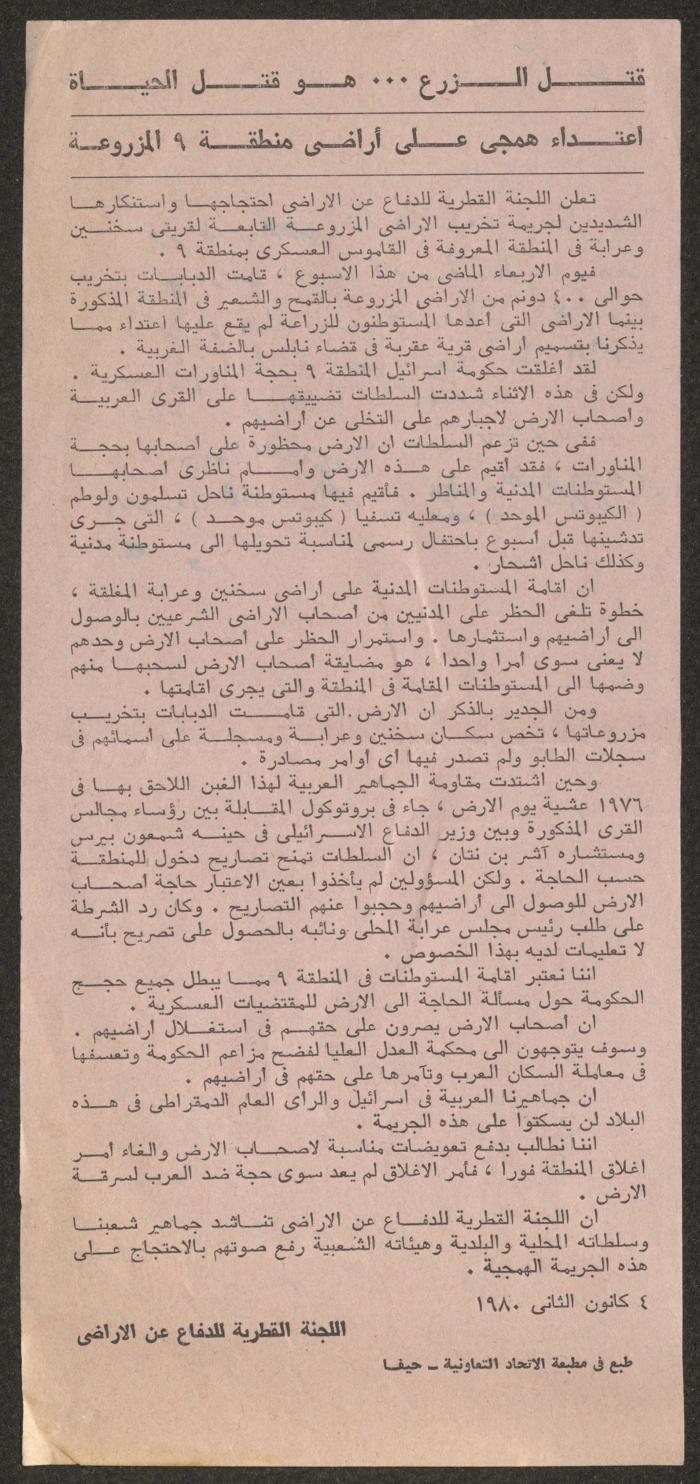 قتل الزرع ٠٠٠ هو قتل الحياة
اعتداء همجى على أراضى منطقة ٩ المزروعة
تعلن اللجنة القطرية للدفاع عن الاراضى احتجاجها واستنكارها
الشديدين لجريمة تخريب الاراضى المزروعة التابعة لقريتى سخنين
وعرابة فى المنطقة المعروفة فى القاموس العسكرى بمنطقة ٩ .
فيوم الاربعاء الماضى من هذا الاسبوع ، قامت الدبابات بتخريب
حوالى ٤٠٠ دونم من الاراضى المزروعة بالقمح والشعير فى المنطقة المذكورة
بينما الاراضى التى أعدها المستوطنون للزراعة لم يقع عليها اعتداء مما
يذكرنا بتسميم أراضى قرية عقربة فى قضاء نابلس بالضفة الغربية .
لقد أغلقت حكومة اسرائيل المنطقة ٩ بحجة المناورات العسكرية .
ولكن فى هذه الاثناء شددت السلطات تضييقها على القرى العربية
وأصحاب الارض لاجبارهم على التخلى عن أراضيهم .
ففى حين تزعم السلطات ان الارض محظورة على أصحابها بحجة
المناورات ، فقد أقيم على هذه الارض وأمام ناظرى أصحابها
المستوطنات المدنية والمناطر . فأقيم فيها مستوطنة ناحل تسلمون ولوطم
( الكيبوتس الموحد ) ، ومعليه تسفيا ( كيبوتس موحد ) ، التى جرى
تدشينها قبل أسبوع باحتفال رسمى لمناسبة تحويلها الى مستوطنة مدنية
وكذلك ناحل اشحار .
ان اقامة المستوطنات المدنية على أراضى سخنين وعرابة المغلقة ،
خطوة تلغى الحظر على المدنيين من أصحاب الاراضى الشرعيين بالوصول
الى أراضيهم واستثمارها . واستمرار الحظر على أصحاب الارض وحدهم
لا يعنى سوى أمرا واحدا ، هو مضايقة أصحاب الارض لسحبها منهم
وضمها الى المستوطنات المقامة فى المنطقة والتى يجرى اقامتها .
ومن الجدير بالذكر ان الارض التى قامت الدبابات بتخريب
مزروعاتها ، تخص سكان سخنين وعرابة ومسجلة على أسمائهم فى
سجلات الطابو ولم تصدر فيها أى أوامر مصادرة .
وحين اشتدت مقاومة الجماهير العربية لهذا الغبن اللاحق بها فى
١٩٧٦ عشية يوم الارض ، جاء فى بروتوكول المقابلة بين رؤساء مجالس
القرى المذكورة وبين وزير الدفاع الاسرائيلى فى حينه شمعون بيرس
ومستشاره آشر بن نتان ، ان السلطات تمنح تصاريح دخول للمنطقة
حسب الحاجة . ولكن المسؤولين لم يأخذوا بعين الاعتبار حاجة أصحاب
الارض للوصول الى أراضيهم وحجبوا عنهم التصاريح . وكان رد الشرطة
على طلب رئيس مجلس عرابة المحلى ونائبه بالحصول على تصريح بأنه
لا تعليمات لديه بهذا الخصوص .
اننا نعتبر اقامة المستوطنات فى المنطقة ٩ مما يبطل جميع حجج
الحكومة حول مسألة الحاجة الى الارض للمقتضيات العسكرية .
ان أصحاب الارض يصرون على حقهم فى استغلال أراضيهم .
وسوف يتوجهون الى محكمة العدل العليا لفضح مزاعم الحكومة وتعسفها
فى معاملة السكان العرب وتآمرها على حقهم فى أراضيهم .
ان جماهيرنا العربية فى اسرائيل والرأى العام الدمقراطى فى هذه
البلاد لن يسكتوا على هذه الجريمة .
اننا نطالب بدفع تعويضات مناسبة لاصحاب الارض والغاء أمر
اغلاق المنطقة فورا ، فأمر الاغلاق لم يعد سوى حجة ضد العرب لسرقة
الارض .
ان اللجنة القطرية للدفاع عن الاراضى تناشد جماهير شعبنا
وسلطاته المحلية والبلدية وهيئاته الشعبية رفع صوتهم بالاحتجاج على
هذه الجريمة الهمجية .
٤ كانون الثانى ١٩٨٠
اللجنة القطرية للدفاع عن الاراضى
طبع فى مطبعة الاتحاد التعاونية ــ حيفا